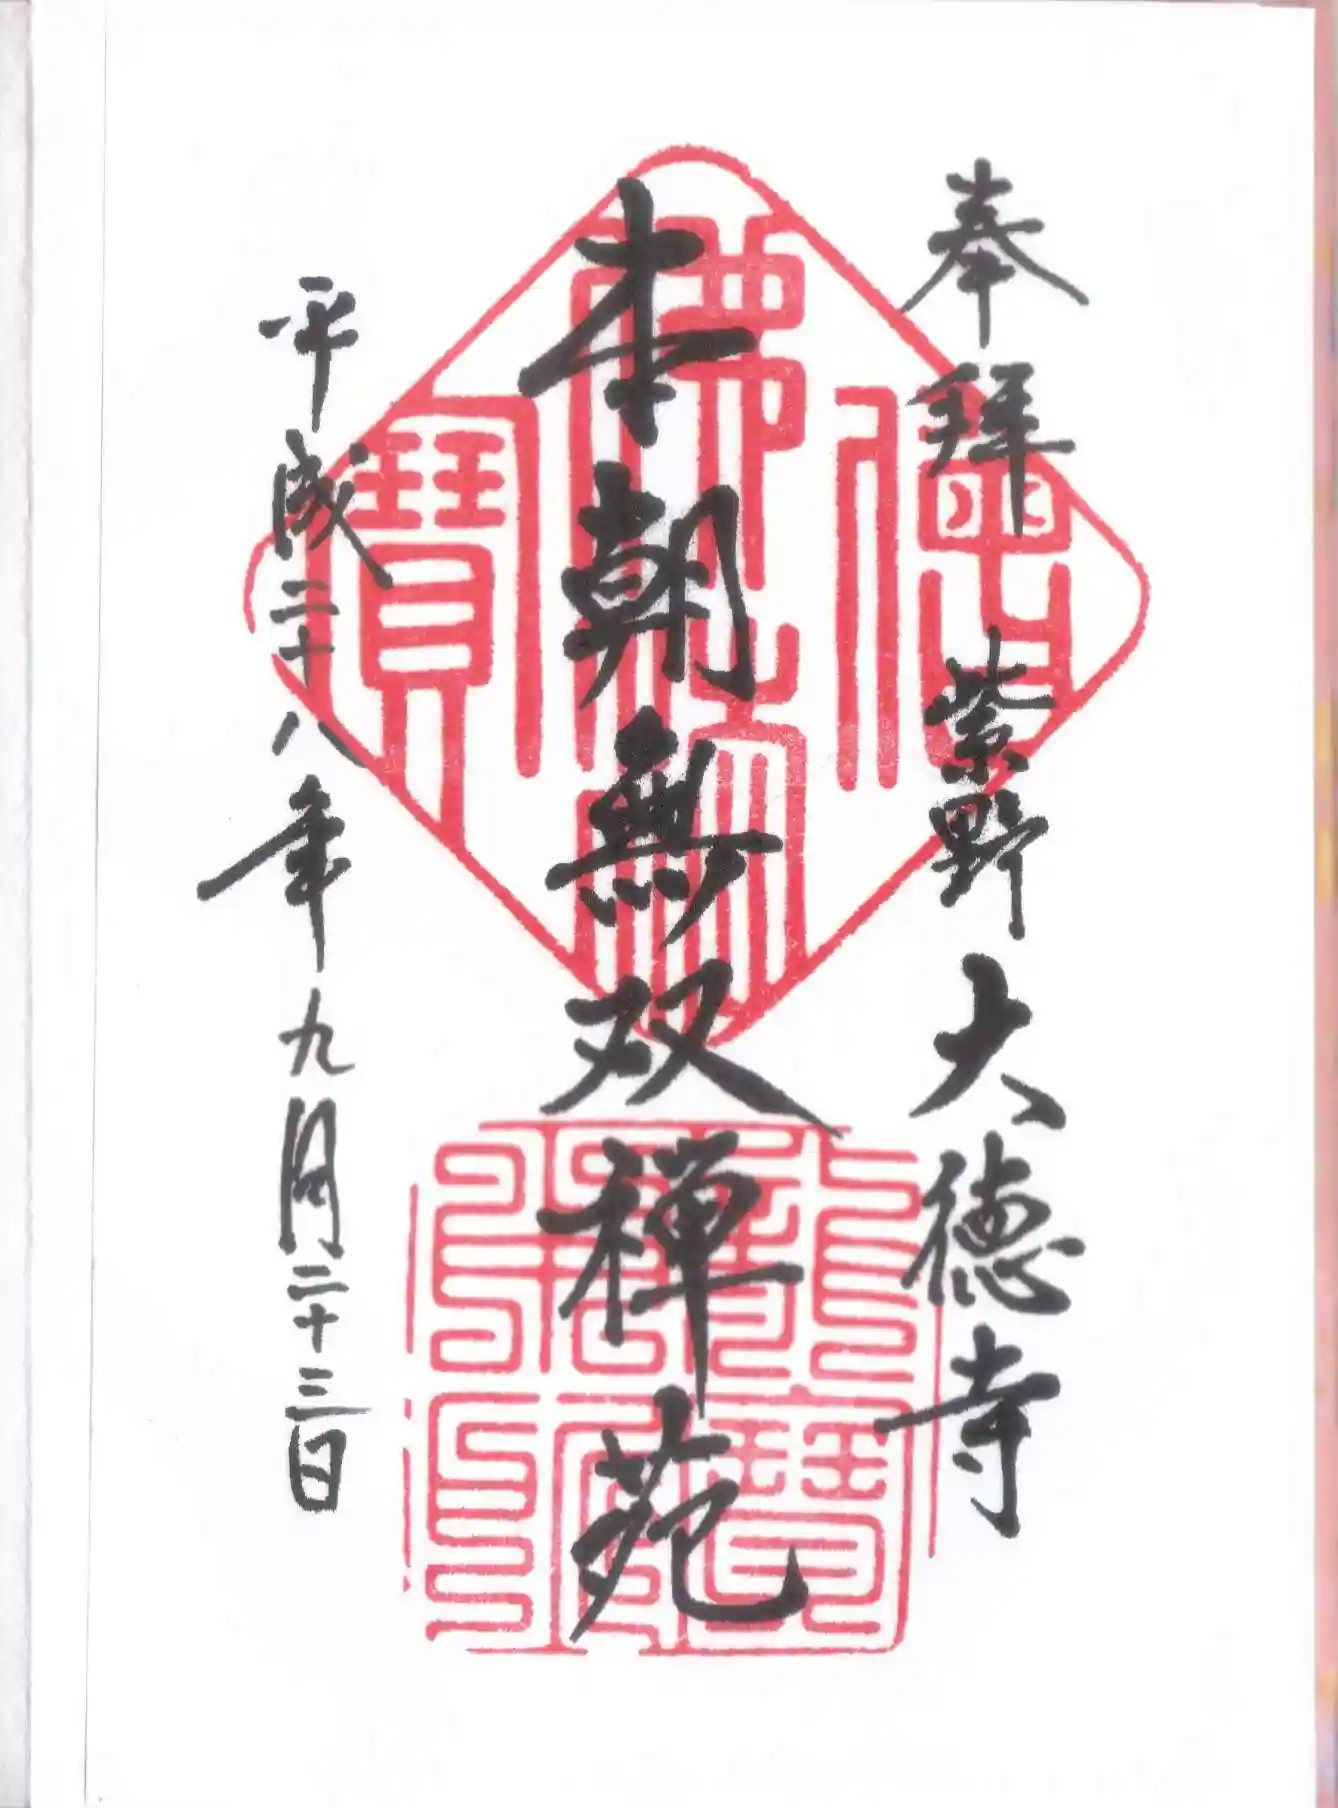 奉拜 紫野大徳寺
本朝無双禅苑
平成二十八年九月二十三日
佛法僧寶